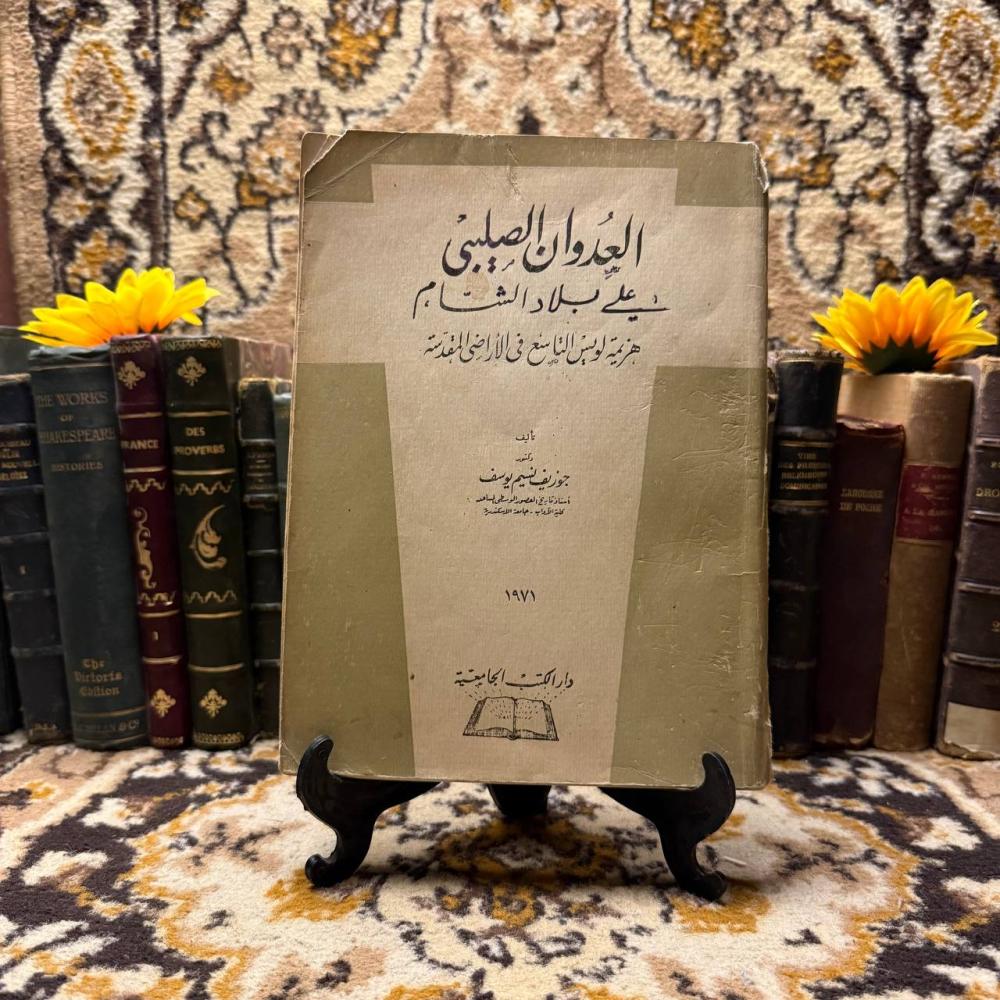 العدوان الصليبي
على بلاد الشام
هزيمة لويس التاسع في الأراضي المقدسة
تأليف
دكتور
جوزيف نسيم يوسف
أستاذ تاريخ العصور الوسطى المساعد
كلية الآداب - جامعة الاسكندرية
١٩٧١
دار الكتب الجامعية
THE WORKS
OF
SHAKESPEARE
HISTORIES
The
Victoria
Edition
FRANCE
DES
PROVERBES
LAROUSSE
DE POCHE